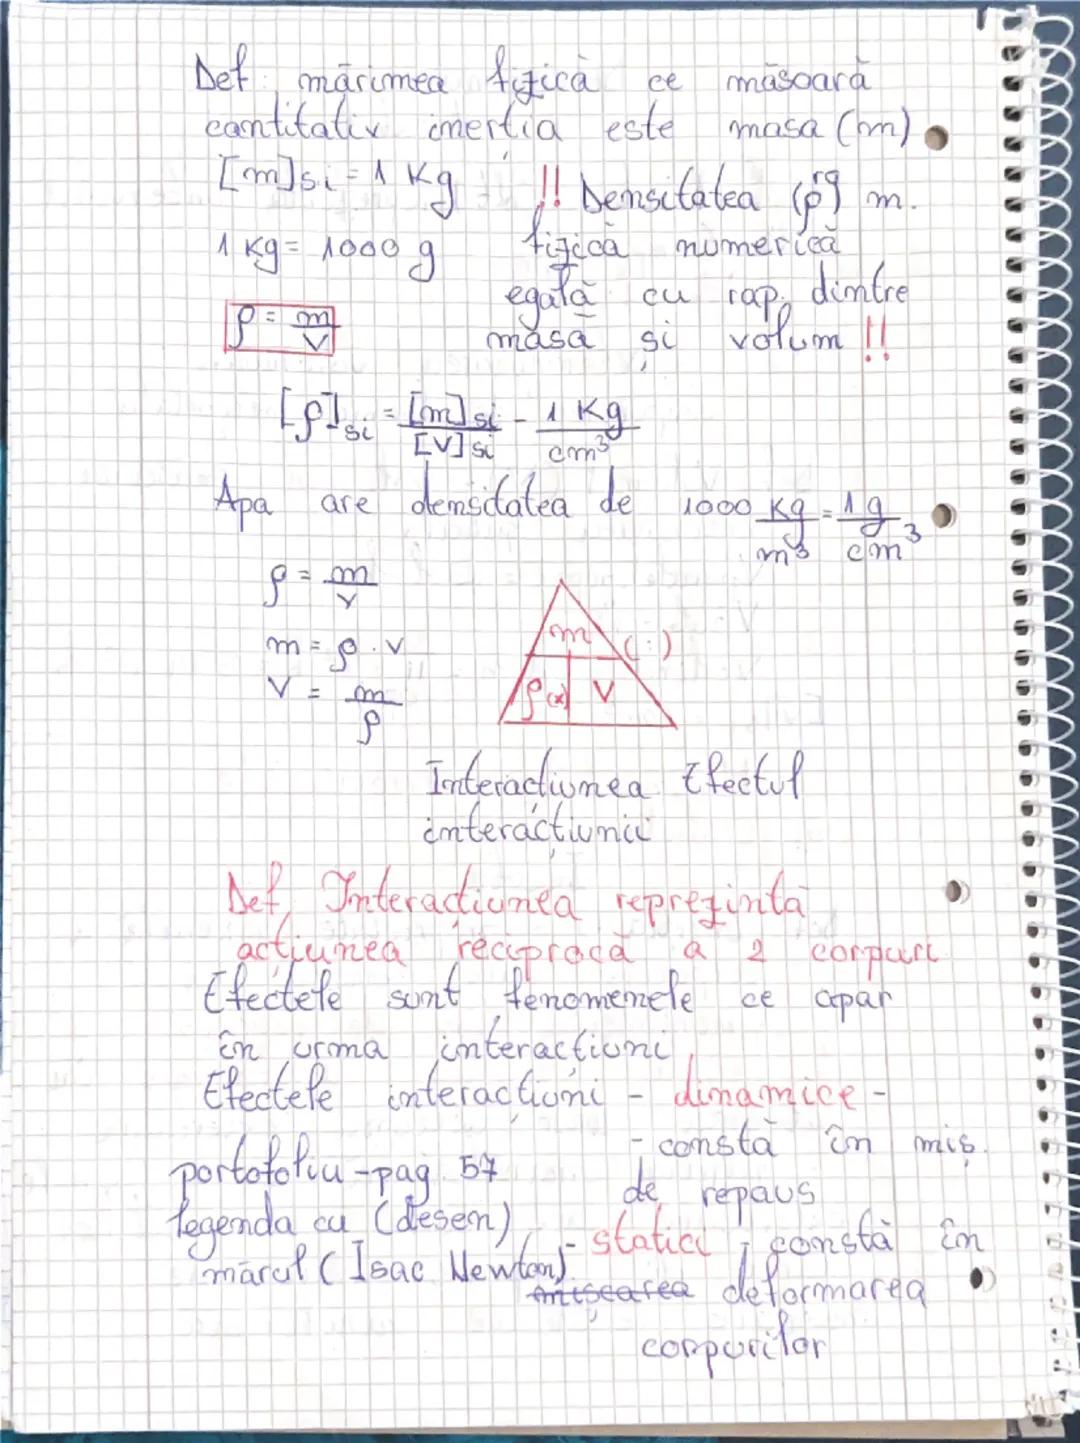 Def: mărimea fizică ce măsoară
cantitativ inerția este masa (m)
[m]si = 1 Kg
1 Kg = 1000 g
ρ = m/V
!! Densitatea (ρ) m.
ro
fizică numerică
egală cu rap. dintre
masă și volum !!
[ρ]si = [m]si/[V]si - 1 Kg/cm³
Apa are densitatea de 1000 Kg/m³ = 1 g/cm³
ρ = m/V
m = ρ . V
V = m/ρ
m (:)
ρ (x) V
Interacțiunea. Efectul
interacțiunii
Def, Interacțiunea reprezintă
acțiunea reciprocă a 2 corpuri
Efectele sunt fenomenele ce apar
în urma interacțiuni
Efectele interacțiuni - dinamice -
- constă în miș.
de repaus
portofoliu - pag. 57
legenda cu (desen)
mărul (Isac Newton)
- statici - constă în
mișcarea deformarea
corpurilor